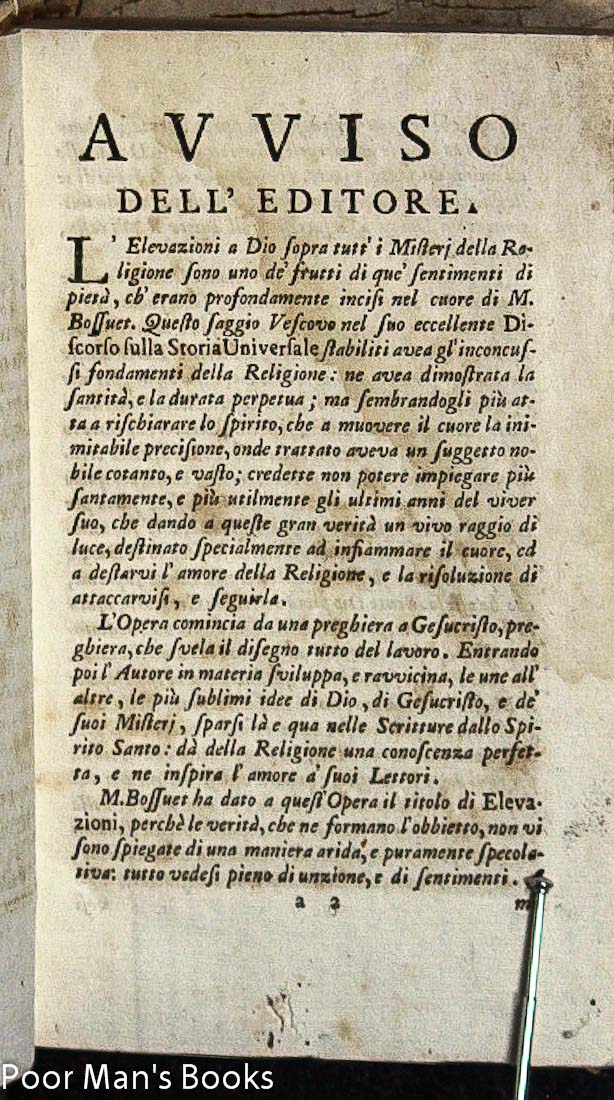 AVVISO
DELL' EDITORE.
L' Elevazioni a Dio ſopra tutt' i Miſterj della Re-
ligione ſono uno de' frutti di que' ſentimenti di
pietà, ch' erano profondamente inciſi nel cuore di M.
Boſſuet. Queſto ſaggio Veſcovo nel ſuo eccellente Di-
ſcorſo ſulla Storia Univerſale ſtabiliti avea gl' inconcuſ-
ſi fondamenti della Religione: ne avea dimoſtrata la
ſantità, e la durata perpetua; ma ſembrandogli più at-
ta a riſchiarare lo ſpirito, che a muovere il cuore la ini-
mitabile preciſione, onde trattato aveva un ſuggetto no-
bile cotanto, e vaſto; credette non potere impiegare più
ſantamente, e più utilmente gli ultimi anni del viver
ſuo, che dando a queſte gran verità un vivo raggio di
luce, deſtinato ſpecialmente ad infiammare il cuore, ed
a deſtarvi l' amore della Religione, e la riſoluzione di
attaccarviſi, e ſeguirla.
L'Opera comincia da una preghiera a Geſucriſto, pre-
ghiera, che ſvela il diſegno tutto del lavoro. Entrando
poi l' Autore in materia ſviluppa, e ravvicina, le une all'
altre, le più ſublimi idee di Dio, di Geſucriſto, e de'
ſuoi Miſterj, ſparſi là e qua nelle Scritture dallo Spi-
rito Santo: dà della Religione una conoſcenza perfet-
ta, e ne inſpira l' amore a' ſuoi Lettori.
M. Boſſuet ha dato a queſt' Opera il titolo di Eleva-
zioni, perchè le verità, che ne formano l' obbietto, non vi
ſono ſpiegate di una maniera arida, e puramente ſpecola-
tiva: tutto vedeſi pieno di unzione, e di ſentimenti.
a 2
Poor Man's Books